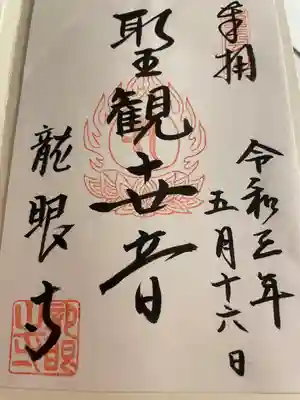 奉拝
令和三年
五月十六日
聖観世音
龍眼寺